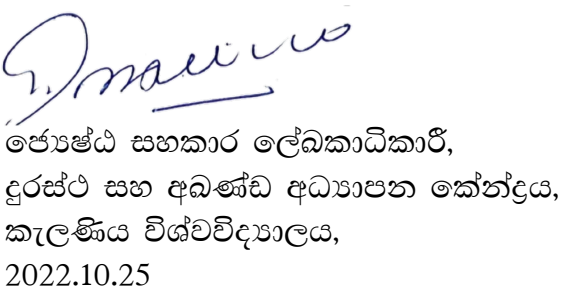 ජ්‍යෙෂ්ඨ සහකාර ලේඛකාධිකාරී,
දුරස්ථ සහ අඛණ්ඩ අධ්‍යාපන කේන්ද්‍රය,
කැලණිය විශ්වවිද්‍යාලය,
2022.10.25